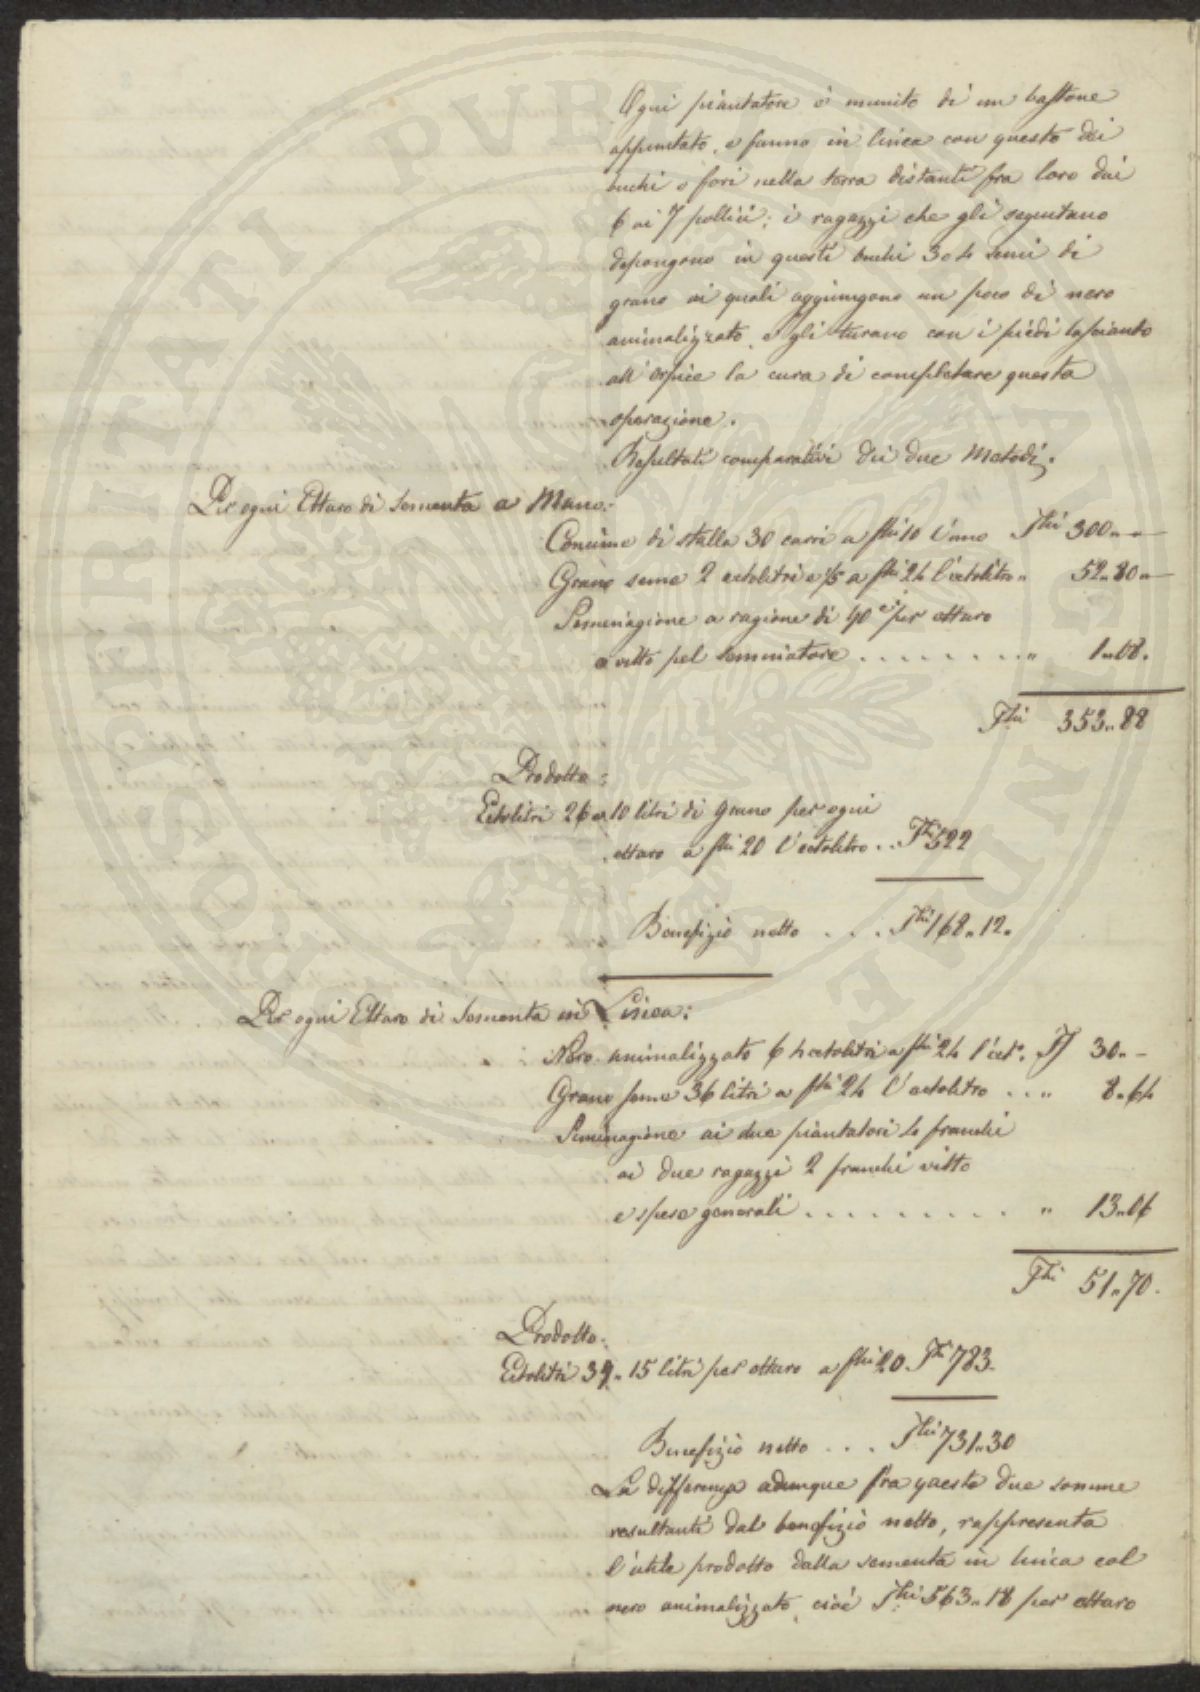 Ogni piantatore è munito di un bastone
appuntato, e fanno in linea con questo dei
buchi o fori nella terra distanti fra loro dai
6 ai 7 pollici; i ragazzi che gli seguitano
depongono in questi buchi 3 o 4 semi di
grano ai quali aggiungono un poco di nero
animalizzato, e gli turano con i piedi lasciando
all'erpice la cura di completare questa
operazione.
Resultati comparativi dei due Metodi.
Per ogni Ettaro di Sementa a Mano.
Concime di stalla 30 carri a fchi 10 l'uno Fchi 300 " "
Grano seme 2 ectolitri e 1/5 a fchi 24 l'ectolitro " 52 " 80 "
Seminagione a ragione di 40 cs per ettaro
e vitto pel seminatore . . . . . . . . " 1 " 08.
Fchi 353 " 88
Prodotto:
Ectolitri 26 e 10 litri di grano per ogni
ettaro a fchi 20 l'ectolitro . . Fchi 522
Benefizio netto . . . Fchi 168 " 12.
Per ogni Ettaro di Sementa in Linea:
Nero animalizzato 6 hectolitri a fchi 24 l'ect.o Ff 30 " -
Grano seme 36 litri a fchi 24 l'ectolitro . . . " 8 " 64
Seminagione ai due piantatori 4 franchi
ai due ragazzi 2 franchi vitto
e spese generali . . . . . . . . . " 13 " 06
Fchi 51 " 70.
Prodotto:
Ectolitri 39 " 15 litri per ettaro a fchi 20. Fchi 783.
Benefizio netto . . . Fchi 731 " 30
La differenza adunque fra queste due somme
resultanti dal benefizio netto, rappresenta
l'utile prodotto dalla sementa in linea col
nero animalizzato, cioè Fchi 563 " 18 per ettaro
PROSPERITATI PUBLICAE AUGENDAE